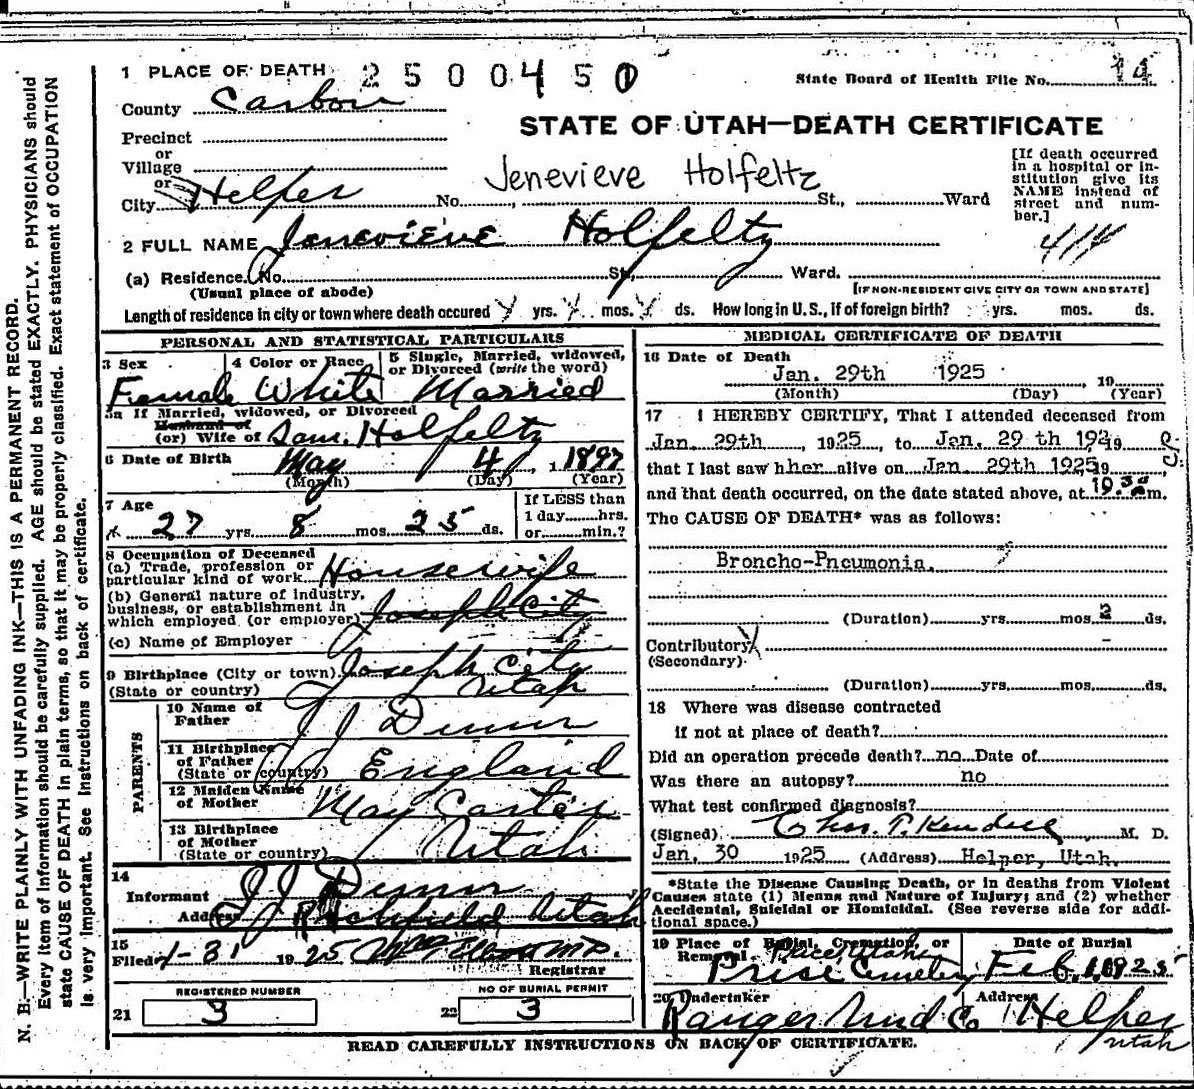 1 PLACE OF DEATH 2500450
State Board of Health File No. 14
County Carbon
STATE OF UTAH—DEATH CERTIFICATE
Precinct
or
Village
or
City Helper No. , St., Ward
Jenevieve Holfeltz
[If death occurred
in a hospital or in-
stitution give its
NAME instead of
street and num-
ber.]
2 FULL NAME Jenevieve Holfeltz
(a) Residence. No. St, Ward.
(Usual place of abode)
[IF NON-RESIDENT GIVE CITY OR TOWN AND STATE]
Length of residence in city or town where death occured yrs. mos. ds. How long in U.S., if of foreign birth? yrs. mos. ds.
PERSONAL AND STATISTICAL PARTICULARS
3 Sex
Female
4 Color or Race
White
5 Single, Married, widowed,
or Divorced (write the word)
Married
5a If Married, widowed, or Divorced
Husband of
(or) Wife of Sam. Holfeltz
6 Date of Birth May 4, 1897
(Month) (Day) (Year)
7 Age
27 yrs. 8 mos. 25 ds.
If LESS than
1 day hrs.
or min.?
8 Occupation of Deceased
(a) Trade, profession or
particular kind of work Housewife
(b) General nature of industry,
business, or establishment in
which employed (or employer) Joseph City
(c) Name of Employer
9 Birthplace (City or town) Joseph City
(State or country) Utah
PARENTS
10 Name of
Father J J
11 Birthplace
of Father
(State or country) England
12 Maiden Name
of Mother May Carter
13 Birthplace
of Mother
(State or country) Utah
14
Informant J J
Address Richfield Utah
15
Filed 1-31 1925 M.D.
Registrar
REGISTERED NUMBER
21 3
NO OF BURIAL PERMIT
22 3
MEDICAL CERTIFICATE OF DEATH
16 Date of Death
Jan. 29th 1925, 19
(Month) (Day) (Year)
17 I HEREBY CERTIFY, That I attended deceased from
Jan. 29th, 1925, to Jan. 29 th 192 19
that I last saw hher alive on Jan. 29th 1925 19
and that death occurred, on the date stated above, at m.
The CAUSE OF DEATH* was as follows:
Broncho-Pneumonia.
(Duration) yrs. mos. 2 ds.
Contributory
(Secondary)
(Duration) yrs. mos. ds.
18 Where was disease contracted
if not at place of death?
Did an operation precede death? no Date of
Was there an autopsy? no
What test confirmed diagnosis?
(Signed) Chas. T. M. D.
Jan. 30 1925 (Address) Helper, Utah.
*State the Disease Causing Death, or in deaths from Violent
Causes state (1) Menns and Nature of Injury; and (2) whether
Accidental, Suicidal or Homicidal. (See reverse side for addi-
tional space.)
19 Place of Burial, Cremation, or
Removal Price, Utah
Price Cemetery
Date of Burial
Feb. 1 1925
20 Undertaker
Address
Helper
Utah
READ CAREFULLY INSTRUCTIONS ON BACK OF CERTIFICATE.
N. B.—WRITE PLAINLY WITH UNFADING INK—THIS IS A PERMANENT RECORD.
Every item of information should be carefully supplied. AGE should be stated EXACTLY. PHYSICIANS should
state CAUSE OF DEATH in plain terms, so that it may be properly classified. Exact statement of OCCUPATION
is very important. See instructions on back of certificate.